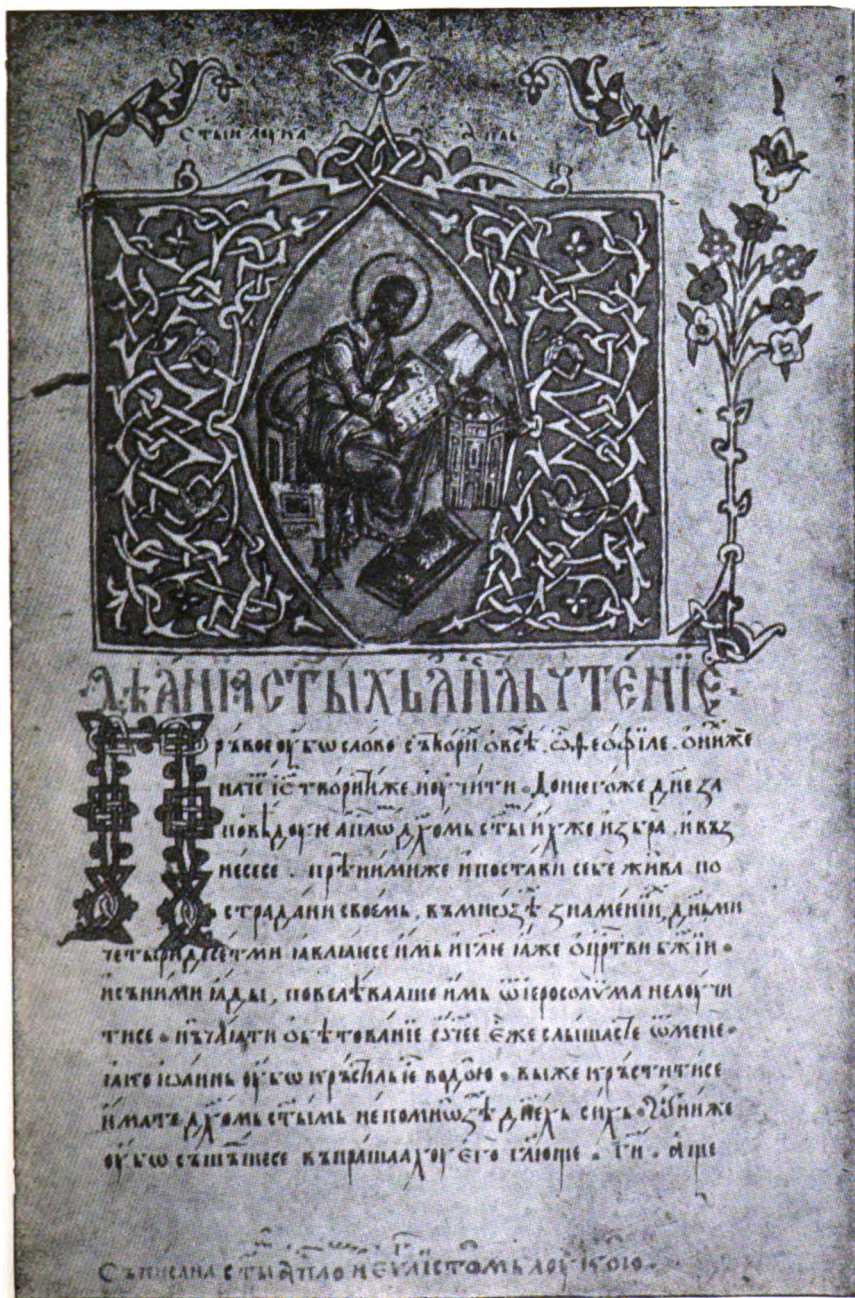 стыи лоука апль
дѣа́нїа сты́хь а́пл҃ь чте́нїе
Пръвое оу҆бѡ слово сътвори́хь ѡ҆ всѣ́, ѽ ѳео́фїле. ѡ҆ ни́хже
наче́ і҆с҃ твори́тиже и҆ оу҆чи́ти. До него́же дн҃е за
повѣ́доуе а҆пл҃ѡ дх҃омь ст҃ы и҆хже и҆збра̀, и҆ въз
несесе. прѣ́ нимиже и҆ постави себе жива по
страдани своемь, въ мнѡзѣ знамении, дн҃ьми
четыридесе́тми ꙗвлꙗесе и҆мь и҆ гл҃е ꙗже ѡ҆ црⷭ҇тви бж҃їи.
и҆ съ ни́ми ꙗ҆ды, повелѣвааше и҆мь ѿ і҆еросолѵ́ма не лоучи
тисе. нъ ча́ти ѡ҆бѣтованїе ѻ҆́чее є҆же слышасте ѿ мене.
ꙗко і҆ѡаннь оу҆бѡ крⷭ҇тиль є҆ водо́ю. выже кръститисе
и҆мате дх҃омь ст҃ымь не по мнѡзѣ дн҃ехь сихь. Ѡ҆ниже
оу҆бѡ съше́шесе въпрашаахоу є҆го гл҃юще. г҃и. а҆ще
Съписана ст҃ы а҆пло и҆ еѵ҃лїстомь лоукою.